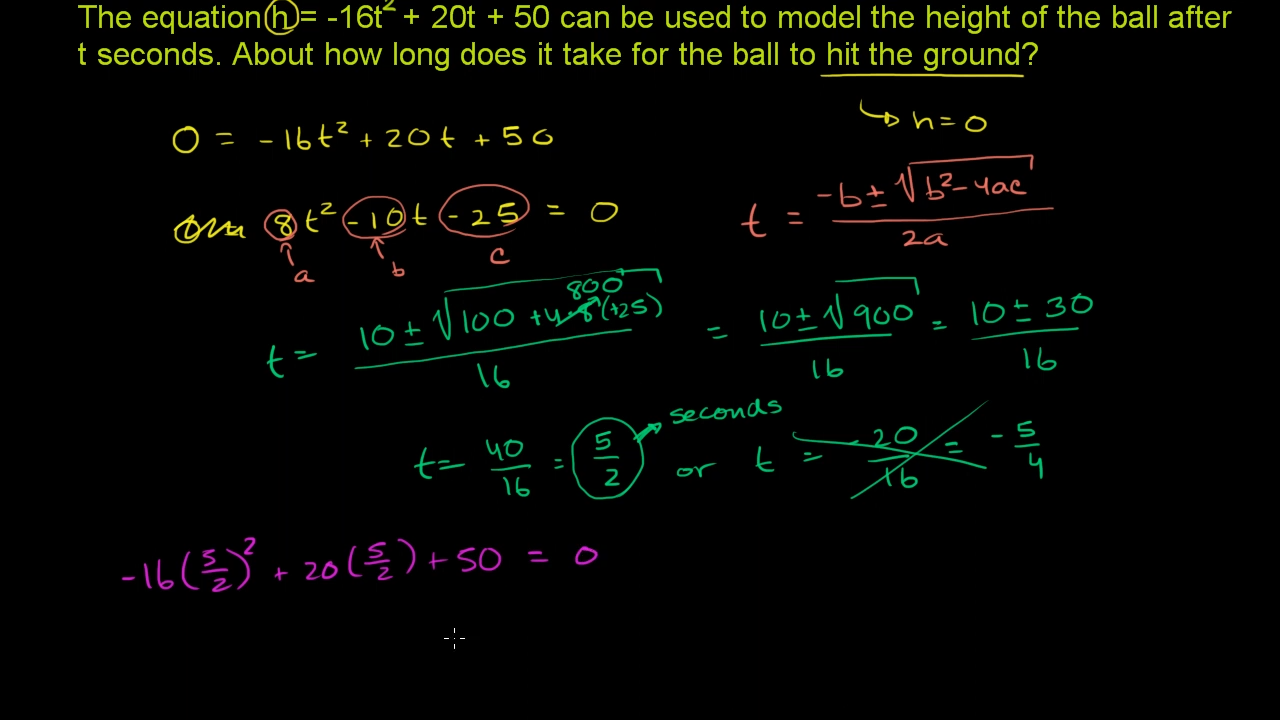 The equation h = -16t² + 20t + 50 can be used to model the height of the ball after
t seconds. About how long does it take for the ball to hit the ground?
h = 0
0 = -16t² + 20t + 50
8t² -10t -25 = 0
a b c
t = (-b ± √(b² - 4ac)) / 2a
t = (10 ± √(100 + 4·8(+25))) / 16 = (10 ± √900) / 16 = (10 ± 30) / 16
800
t = 40/16 = 5/2 seconds or t = -20/16 = -5/4
-16(5/2)² + 20(5/2) + 50 = 0